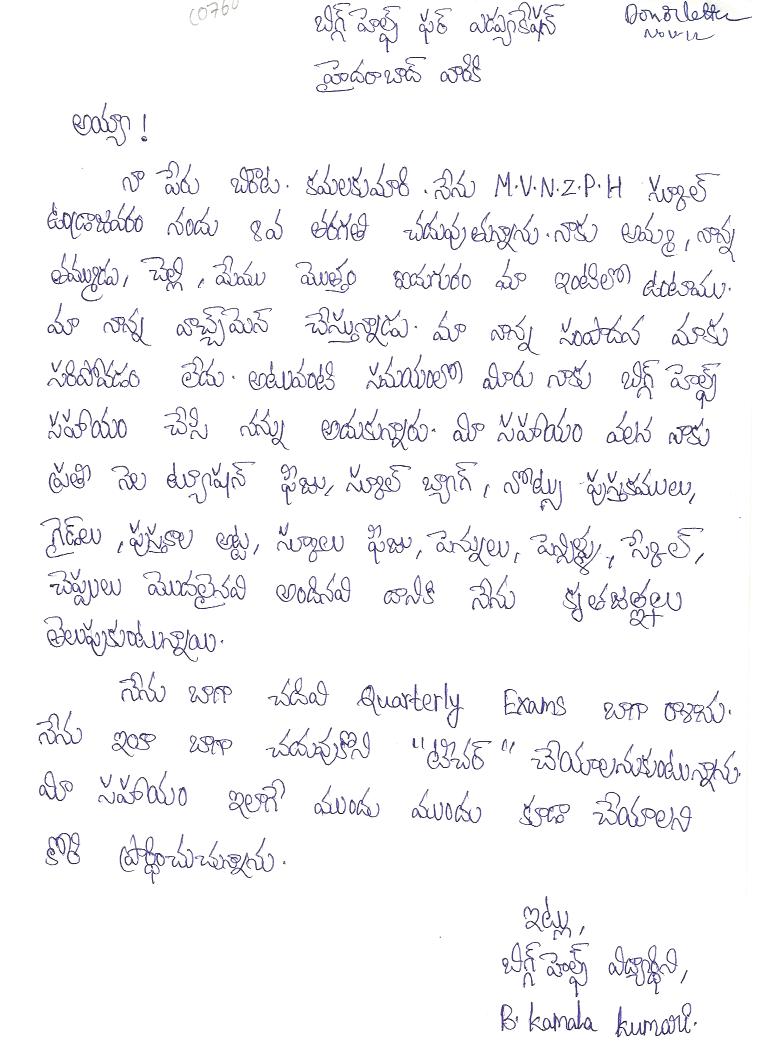 C0760
బిగ్గ్ హెల్ప్ ఫర్ ఎడ్యుకేషన్
Donor letter
Nov-12
హైదరాబాద్ వారికి
అయ్యా !
నా పేరు బిరాట. కమలకుమారి. నేను M.V.N.Z.P.H స్కూల్
ఉండ్రాజవరం నందు 8వ తరగతి చదువుతున్నాను. నాకు అమ్మ, నాన్న
తమ్ముడు, చెల్లి, మేము మొత్తం ఐదుగురం మా ఇంటిలో ఉంటాము.
మా నాన్న వాచ్మెన్ చేస్తున్నాడు. మా నాన్న సంపాదన మాకు
సరిపోవడం లేదు. అటువంటి సమయంలో మీరు నాకు బిగ్గ్ హెల్ప్
సహాయం చేసి నన్ను ఆదుకున్నారు. మీ సహాయం వలన నాకు
ప్రతి నెల ట్యూషన్ ఫీజు, స్కూల్ బ్యాగ్, నోట్సు పుస్తకములు,
గైడ్‌లు, పుస్తకాల అట్ట, స్కూలు ఫీజు, పెన్నులు, పెన్సిళ్ళు, స్కేల్,
చెప్పులు మొదలైనవి అందినవి దానికి నేను కృతజ్ఞతలు
తెలుపుకుంటున్నాయి.
నేను బాగా చదివి Quarterly Exams బాగా రాశాను.
నేను ఇంకా బాగా చదువుకొని "టీచర్" చేయాలనుకుంటున్నాను.
మీ సహాయం ఇలాగే ముందు ముందు కూడా చేయాలని
కోరి ప్రార్థించుచున్నాను.
ఇట్లు,
బిగ్గ్ హెల్ప్ విద్యార్థిని,
B. Kamala Kumari.